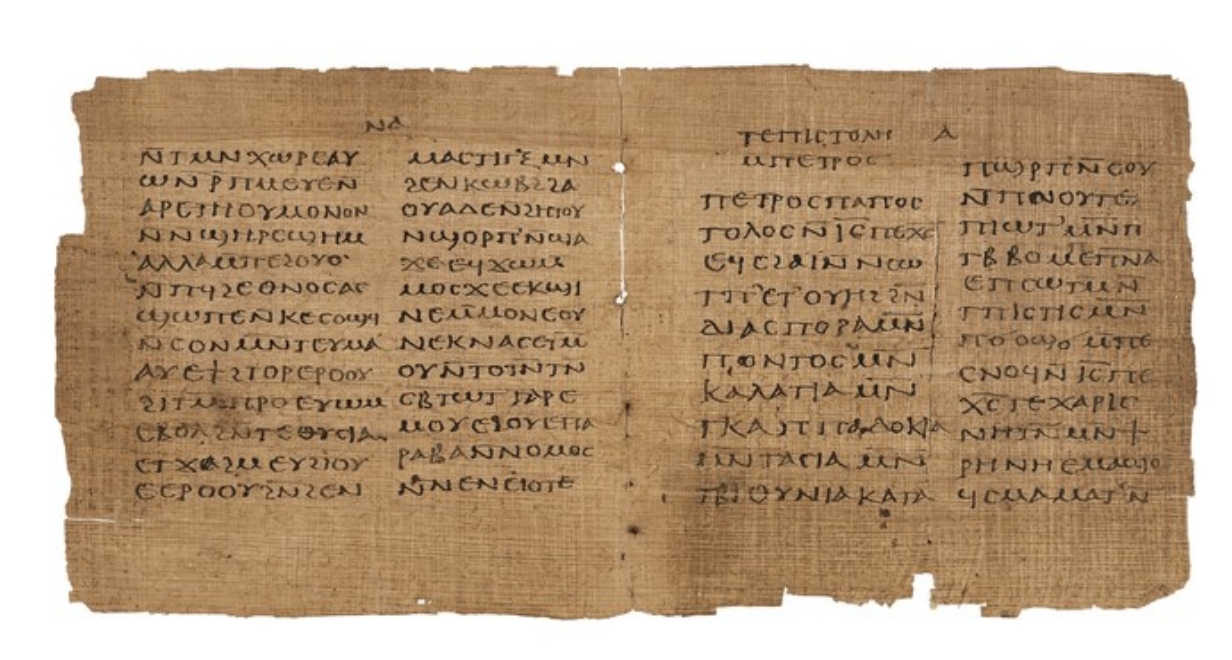 ⲛⲇ
ⲛ̄ⲧⲙⲛⲭⲱⲣⲉⲁⲩ
ⲱⲛ ⲣ̄ⲡⲙⲉⲩⲉⲛ̄
ⲁⲣⲉⲧⲏⲟⲩⲙⲟⲛⲟⲛ
ⲛⲛϣⲏⲣⲉϣⲏⲙ
ⲁⲗⲗⲁⲙⲡⲉϩⲟⲩⲟ
ⲛ̄ⲡϥϩⲉⲑⲛⲟⲥⲁⲥ
ϣⲱⲡⲉⲛⲕⲉⲥⲟϣϥ
ⲛⲥⲟⲛⲙ̄ⲛⲧⲉⲩⲙⲁ
ⲁⲩⲉϯϩⲧⲟⲣⲉⲣⲟⲟⲩ
ϩⲓⲧⲙⲡⲣⲟⲉⲩⲱⲙ
ⲉⲃⲟⲗϩⲛⲧⲉⲑⲩⲥⲓⲁ
ⲉⲧϫⲁϩⲙⲉⲩϩⲓⲟⲩ
ⲉⲉⲣⲟⲟⲩϩ̄ⲛϩⲉⲛ
ⲙⲁⲥⲧⲓⲅⲝ ⲙⲛ
ϩⲉⲛⲕⲱⲃϩϩⲁ
ⲟⲩⲁⲇⲉⲛϩⲏⲧⲟⲩ
ⲛϣⲟⲣⲡⲛ̄ϣⲁ
ϫⲉⲉϥϫⲱⲙ
ⲙⲟⲥϫⲉⲉⲕϣⲓ
ⲛⲉⲙ̄ⲙⲟⲛⲉⲟⲩ
ⲛⲉⲕⲛⲁⲥⲉⲓⲙ̄
ⲟⲩⲛ̄ⲧⲟⲓⲛ̄ⲧⲛ
ⲥⲃⲧⲱⲧⲅⲁⲣⲉ
ⲙⲟⲩⲉϩⲟⲩⲉⲡⲁ
ⲣⲁⲃⲁⲛ̄ⲛⲟⲙⲟⲥ
ⲛ̄ⲛⲉⲛⲉⲓⲟⲧⲉ
ⲧⲉⲡⲓⲥⲧⲟⲗⲏ ⲁ
ⲙⲡⲉⲧⲣⲟⲥ
ⲡⲉⲧⲣⲟⲥⲡⲁⲡⲟⲥ
ⲧⲟⲗⲟⲥⲛ̄ⲓ̄ⲥ̄ⲡⲉⲭⲥ
ⲉϥⲥϩⲁⲓⲛ̄ⲛⲥⲱ
ⲧⲡⲉⲧⲟⲩⲏϩϩ̄ⲛ
ⲇⲓⲁⲥⲡⲟⲣⲁⲙ̄ⲛ̄
ⲡⲟⲛⲧⲟⲥⲙ̄ⲛ̄
ⲕⲁⲗⲁⲧⲓⲁⲙ̄ⲛ̄
ⲧⲕⲁⲡⲡⲁⲇⲟⲕⲓⲁ
ⲙ̄ⲛⲧⲁⲥⲓⲁⲙ̄ⲛ̄
ⲧⲃⲓⲑⲩⲛⲓⲁⲕⲁⲧⲁ
ⲡϣⲣⲡⲛ̄ⲥⲟⲩ
ⲛ̄ⲡⲛⲟⲩⲧⲉ
ⲡⲓⲱⲧⲙ̄ⲛ̄ⲡ
ⲧⲃⲃⲟⲙⲉⲡⲛⲁ
ⲉⲡⲥⲱⲧⲙ̄ⲛ
ⲧⲡⲓⲥⲧⲓⲥⲙ̄ⲛ̄
ⲡϭⲟϣϭ̄ⲙ̄ⲡⲉ
ⲥⲛⲟϥⲛ̄ⲓ̄ⲥ̄ⲡⲉ
ⲭ̄ⲥ̄ⲧⲉⲭⲁⲣⲓⲥ
ⲛⲏⲧⲛ̄ⲙ̄ⲛϯ
ⲣⲏⲛⲏⲉⲙⲁϣⲟ
ϥⲥⲙⲁⲙⲁⲁⲧⲛ̄